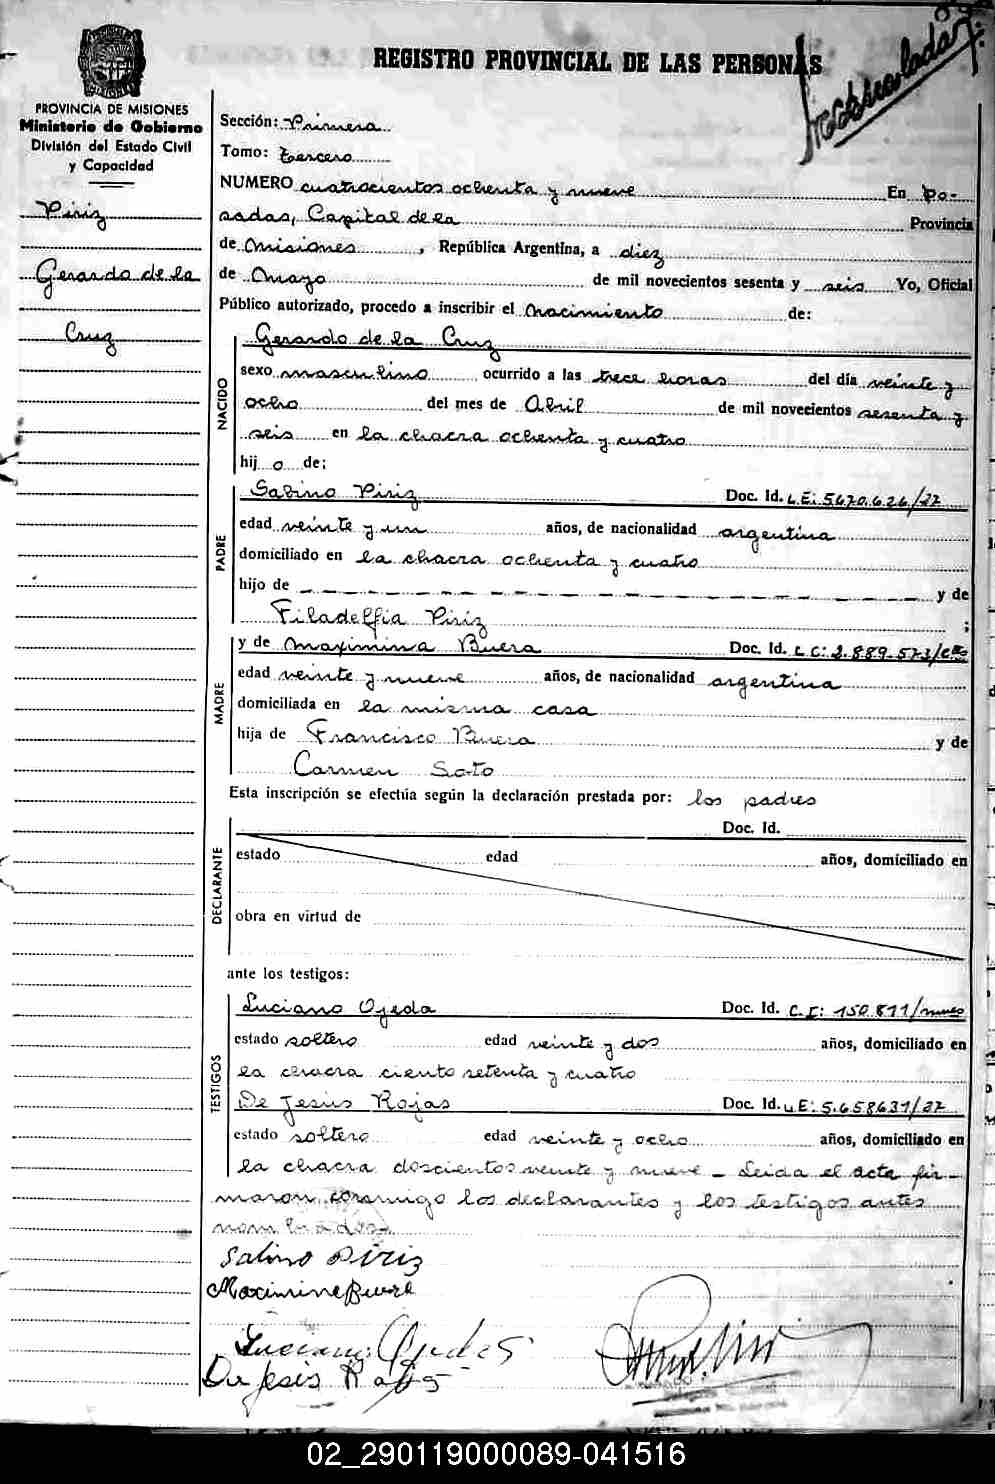 REGISTRO PROVINCIAL DE LAS PERSONAS
PROVINCIA DE MISIONES
Ministerio de Gobierno
División del Estado Civil
y Capacidad
Piriz
Gerardo de la
Cruz
Sección: Primera
Tomo: tercero
NUMERO cuatrocientos ochenta y nueve En Po-
sadas, Capital de la Provincia
de Misiones, República Argentina, a diez
de Mayo de mil novecientos sesenta y seis Yo, Oficial
Público autorizado, procedo a inscribir el nacimiento de:
NACIDO
Gerardo de la Cruz
sexo masculino ocurrido a las trece horas del día veinte y
ocho del mes de Abril de mil novecientos sesenta y
seis en la chacra ochenta y cuatro
hij o de;
PADRE
Sabino Piriz Doc. Id. L.E: 5.670.626/37
edad veinte y un años, de nacionalidad argentina
domiciliado en la chacra ochenta y cuatro
hijo de — — — — — — — — — — — — — — — — y de
Filadelfia Piriz ;
MADRE
y de Maximina Buera Doc. Id. L C: 2.889.573/
edad veinte y nueve años, de nacionalidad argentina
domiciliada en la misma casa
hija de Francisco Buera y de
Carmen Soto
Esta inscripción se efectúa según la declaración prestada por: los padres
DECLARANTE
Doc. Id.
estado edad años, domiciliado en
obra en virtud de
ante los testigos:
TESTIGOS
Luciano Ojeda Doc. Id. C.I: 150.811/mnes
estado soltero edad veinte y dos años, domiciliado en
la chacra ciento setenta y cuatro
De Jesús Rojas Doc. Id. L E: 5.658631/37
estado soltero edad veinte y ocho años, domiciliado en
la chacra doscientos veinte y nueve – Leida el acta fir-
maron conmigo los declarantes y los testigos antes
nombrados.
Sabino Piriz
Maximina Buera
Luciano Ojeda
De Jesis Rojas
02_290119000089-041516